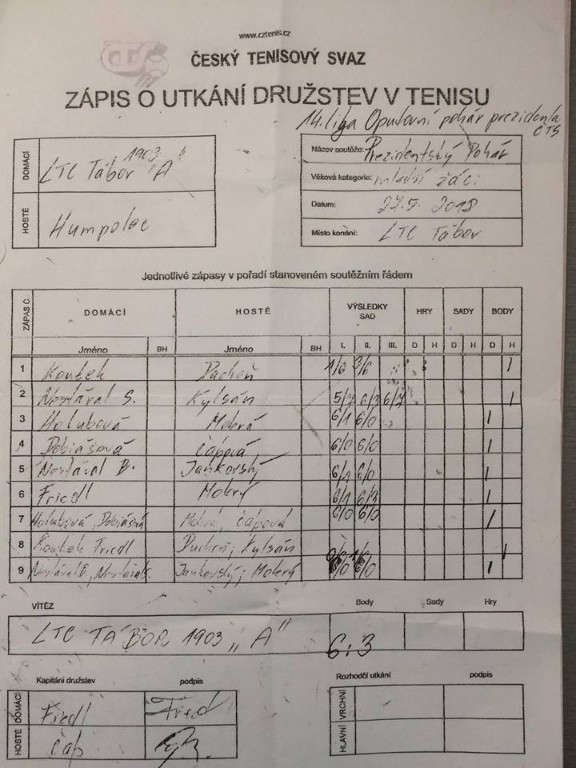 www.cztenis.cz
ČESKÝ TENISOVÝ SVAZ
ZÁPIS O UTKÁNÍ DRUŽSTEV V TENISU
14. liga pohár prezidenta ČTS
DOMÁCÍ LTC Tábor 1903 "A"
HOSTÉ Humpolec
Název soutěže: Prezidentský Pohár
Věková kategorie: mladší žáci
Datum: 27.5.2018
Místo konání: LTC Tábor
Jednotlivé zápasy v pořadí stanoveném soutěžním řádem
ZÁPAS Č. DOMÁCÍ HOSTÉ VÝSLEDKY SAD HRY SADY BODY
Jméno BH Jméno BH I. II. III. D H D H D H
1 Koutek Puchoň 1/6 3/6 1
2 Nostával S. Kylsán 5/7 6/3 6/7 1
3 Holubová Mokrá 6/1 6/0 1
4 Dobiášová Čápová 6/0 6/0 1
5 Nostával B. Jankovský 6/1 6/0 1
6 Friedl Mokrý 6/1 6/3 1
7 Holubová, Dobiášová Mokrá, Čápová 6/0 6/0 1
8 Koutek Friedl Puchoň, Kylsán 1
9 Nostával B., Nostával S. Jankovský, Mokrý 6/0 6/0 1
VÍTĚZ Body Sady Hry
LTC TÁBOR 1903 "A" 6:3
Kapitáni družstev podpis Rozhodčí utkání podpis
DOMÁCÍ Friedl Friedl VRCHNÍ
HOSTÉ Čáp HLAVNÍ